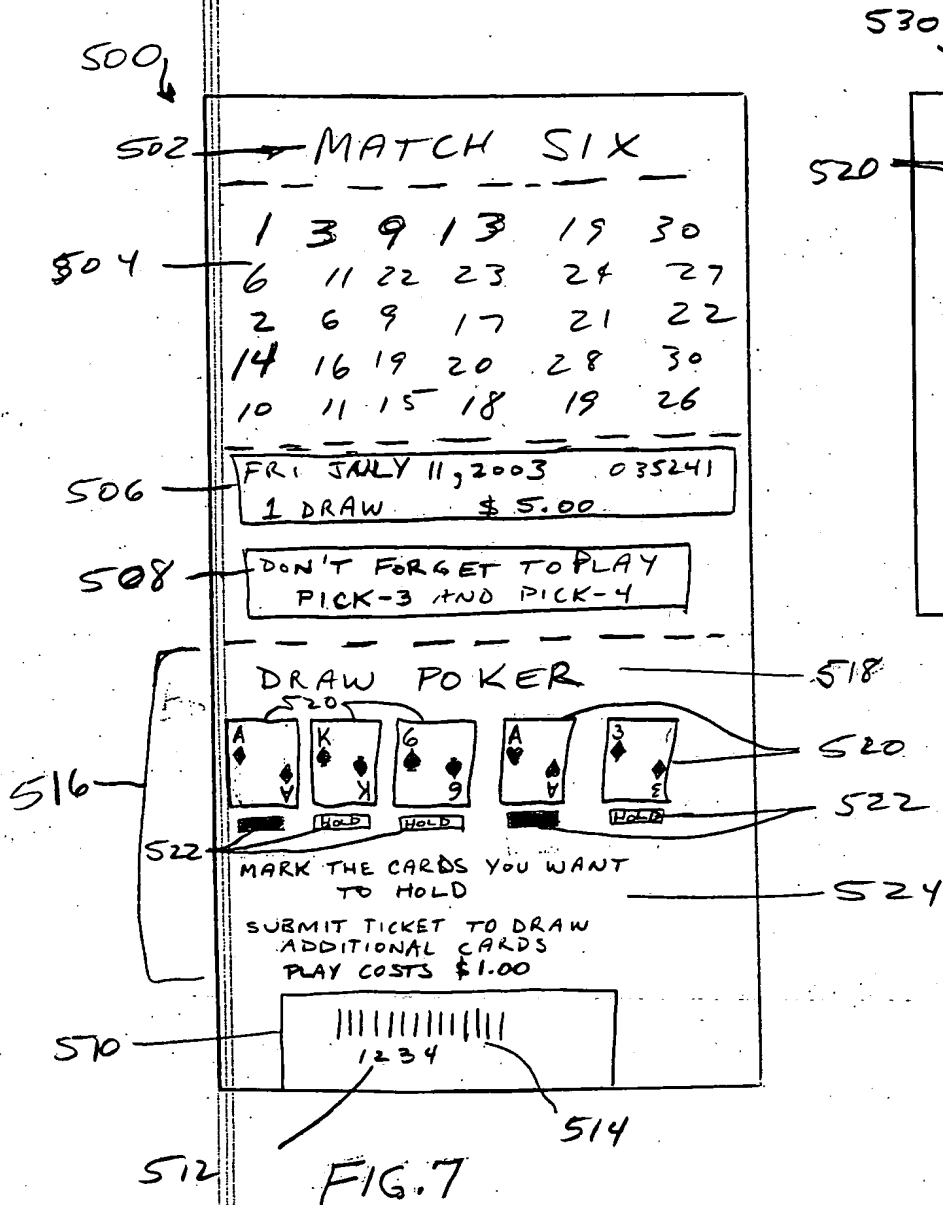 530
500
502 MATCH SIX
520
1 3 9 13 19 30
504
6 11 22 23 24 27
2 6 9 17 21 22
14 16 19 20 28 30
10 11 15 18 19 26
FRI 11, 2003 035241
506
1 DRAW $ 5.00
508
DON'T FORGET TO PLAY
PICK-3 AND PICK-4
DRAW POKER 518
520
A K 6 A 3
A K 6 A 3
520
516
HOLD HOLD HOLD 522
522
MARK THE CARDS YOU WANT
TO HOLD
524
SUBMIT TICKET TO DRAW
ADDITIONAL CARDS
PLAY COSTS $1.00
510
1234
514
512
FIG. 7